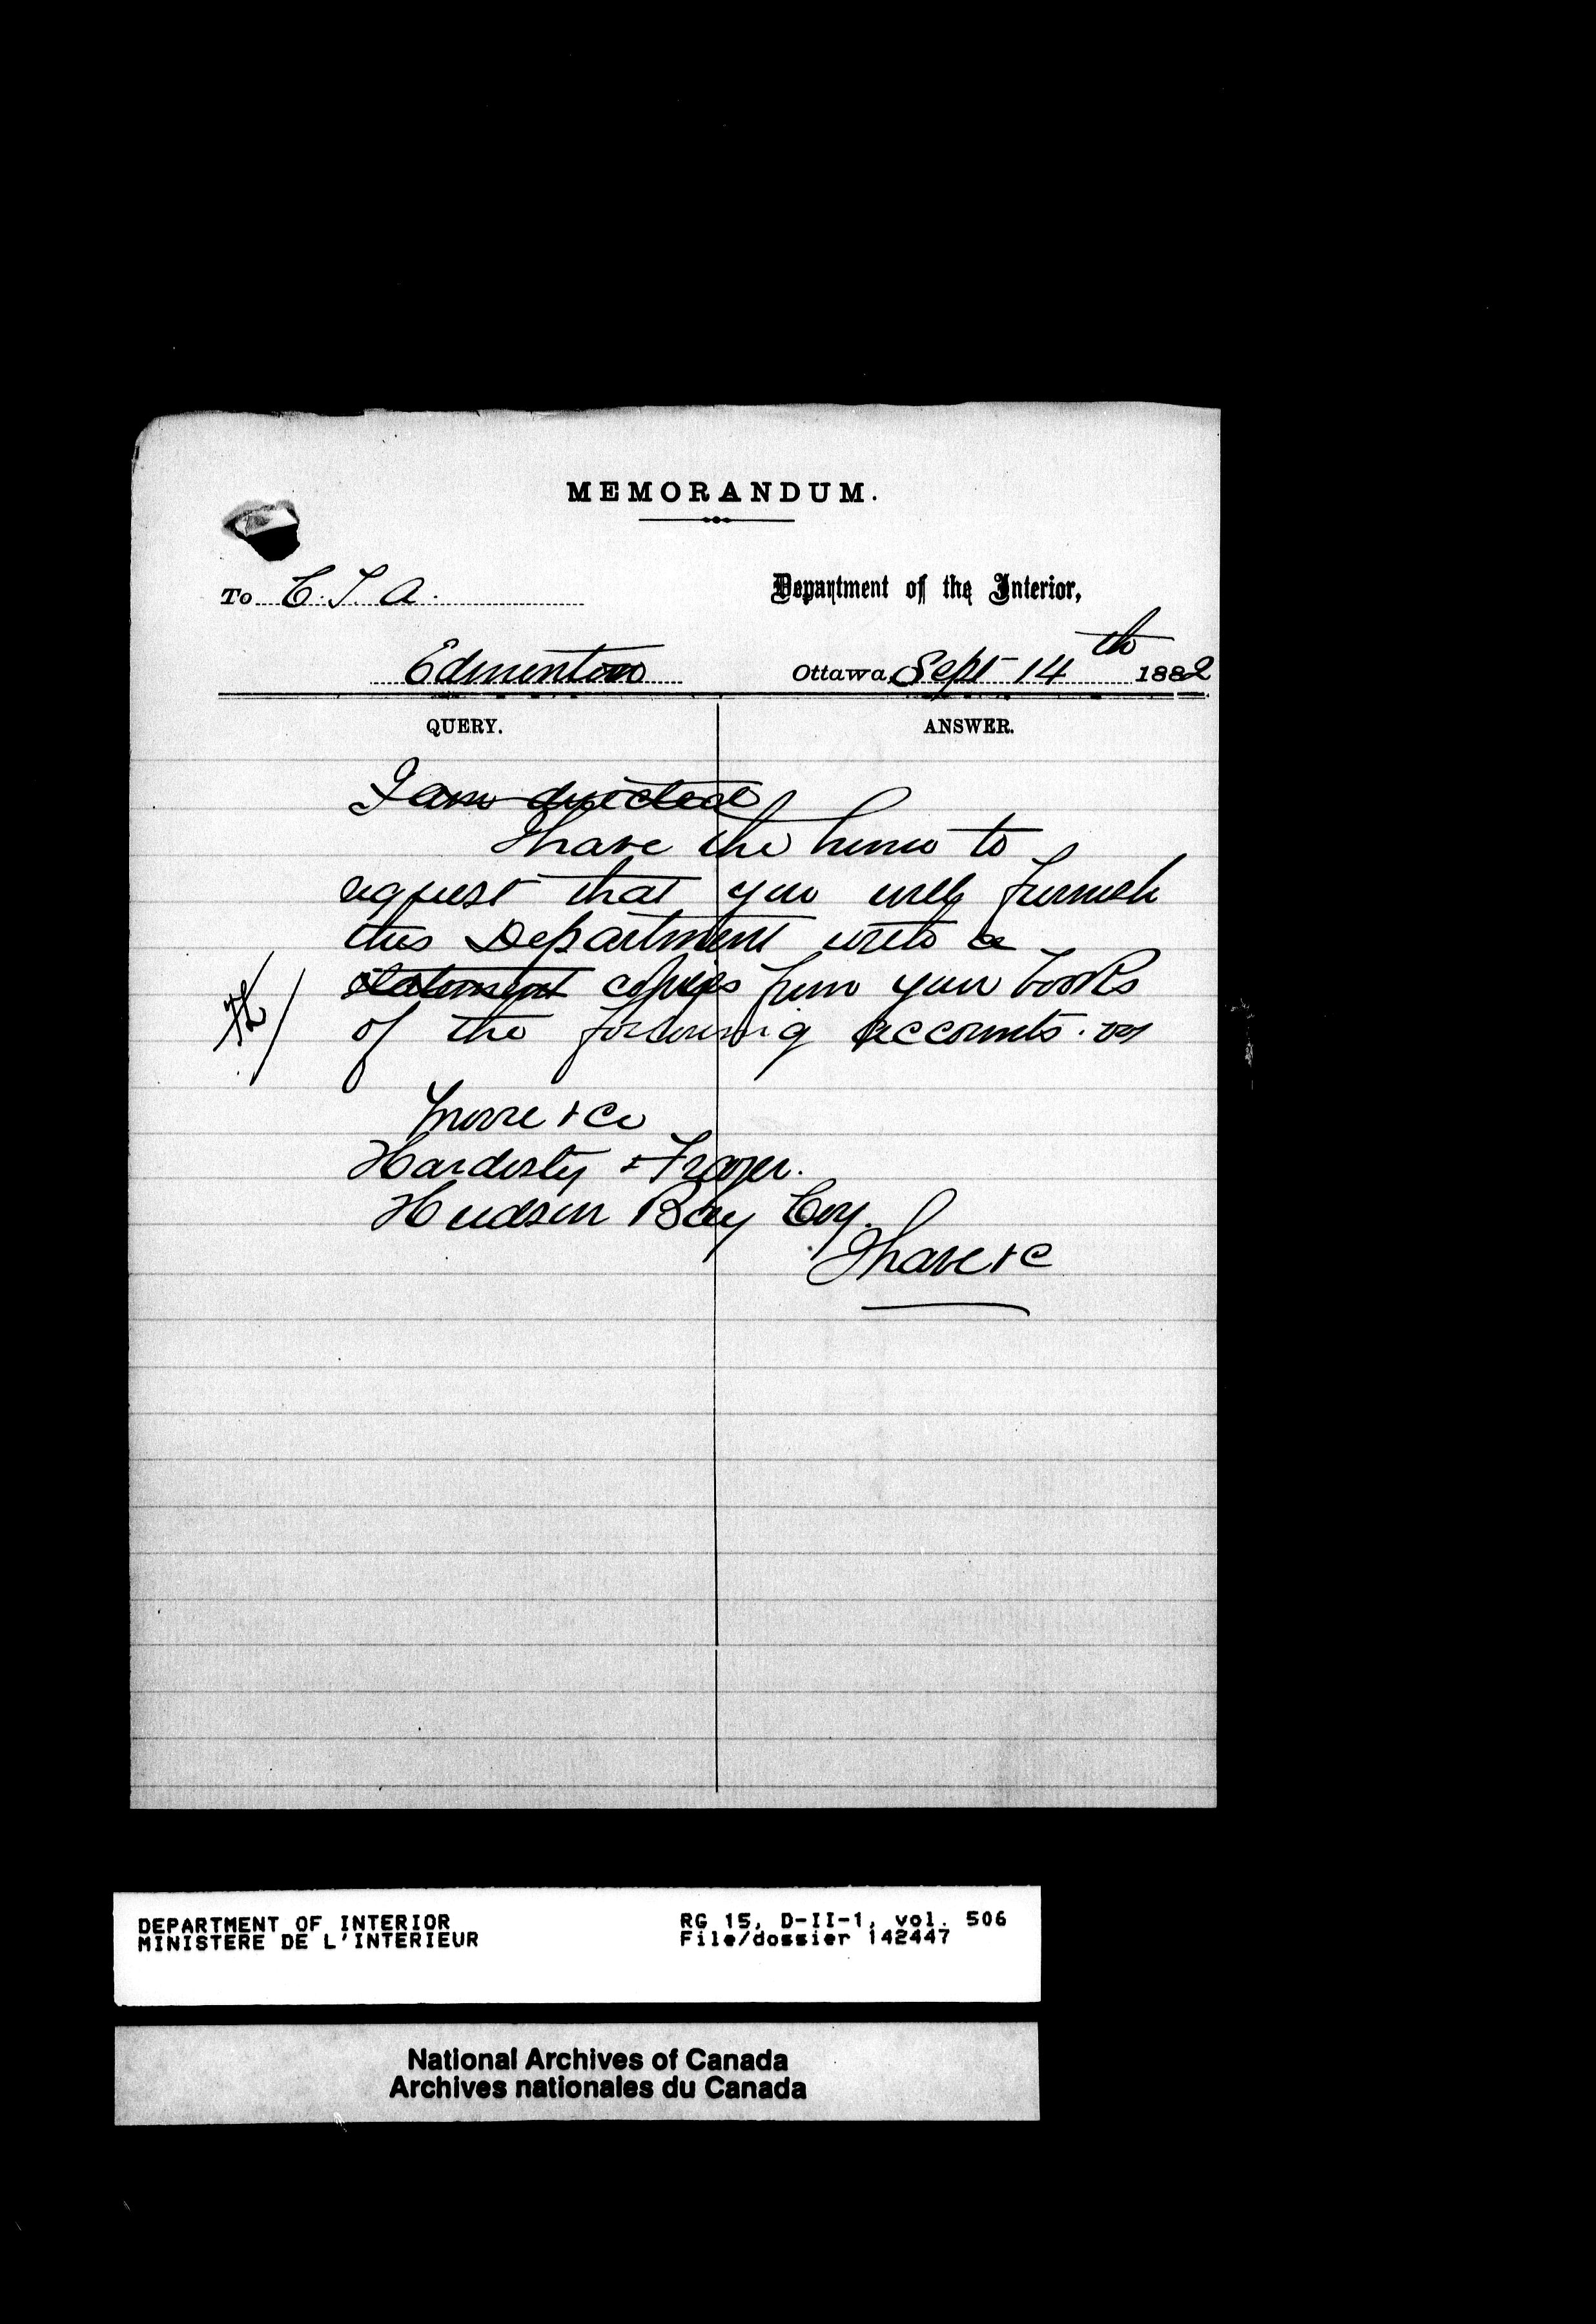 MEMORANDUM.
To C. T. A.
Department of the Interior,
Edmonton
Ottawa, Sept 14th 1882
QUERY.
ANSWER.
I am directed
I have the honor to
request that you will furnish
this Department with a
statement copies from your books
of the following accounts.
Moore & Co
Hardisty & Fraser.
Hudson Bay Coy.
I have &c
DEPARTMENT OF INTERIOR
MINISTERE DE L'INTERIEUR
RG 15, D-II-1, vol. 506
File/dossier 142447
National Archives of Canada
Archives nationales du Canada